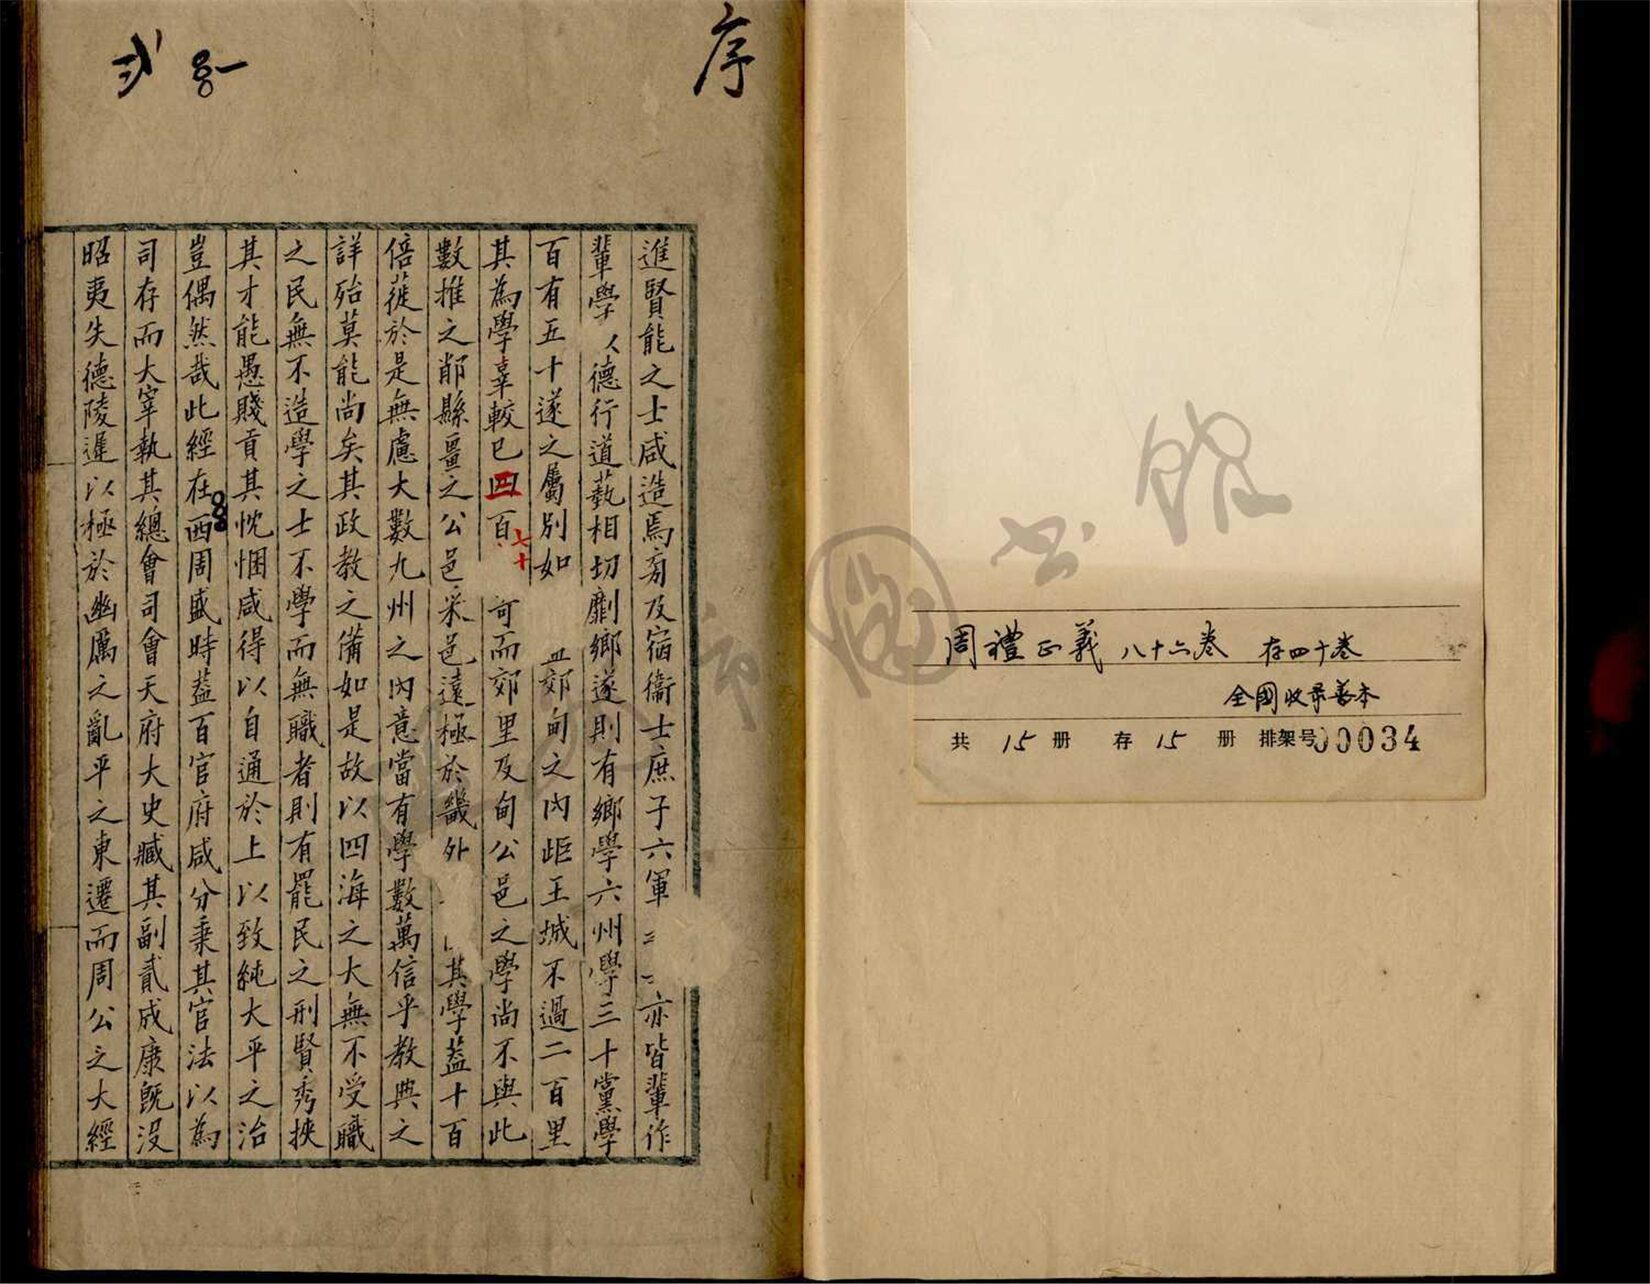 周禮正義 八十六卷 存四十卷
全國收录善本
共 15 册 存 15 册 排架号 00034
序
進賢能之士咸造焉旁及宿衞士庶子六軍亦皆輩作
輩學德行道藝相切劘鄉遂則有鄉學六州學三十黨學
百有五十遂之屬別如郊甸之內距王城不過二百里
其為學辜較已四百七十而郊里及甸公邑之學尚不與此
數推之鄁縣畺之公邑采邑遠極於畿外其學蓋十百
倍蓰於是無慮大數九州之内意當有學數萬信乎教典之
詳殆莫能尚矣其政教之備如是故以四海之大無不受職
之民無不造學之士不學而無職者則有罷民之刑賢秀挾
其才能愚賤貢其忱悃咸得以自通於上以致純大平之治
豈偶然哉此經在西周盛時蓋百官府咸分秉其官法以為
司存而大宰執其總會司會天府大史臧其副貳成康旣沒
昭夷失德陵遲以極於幽厲之亂平之東遷而周公之大經